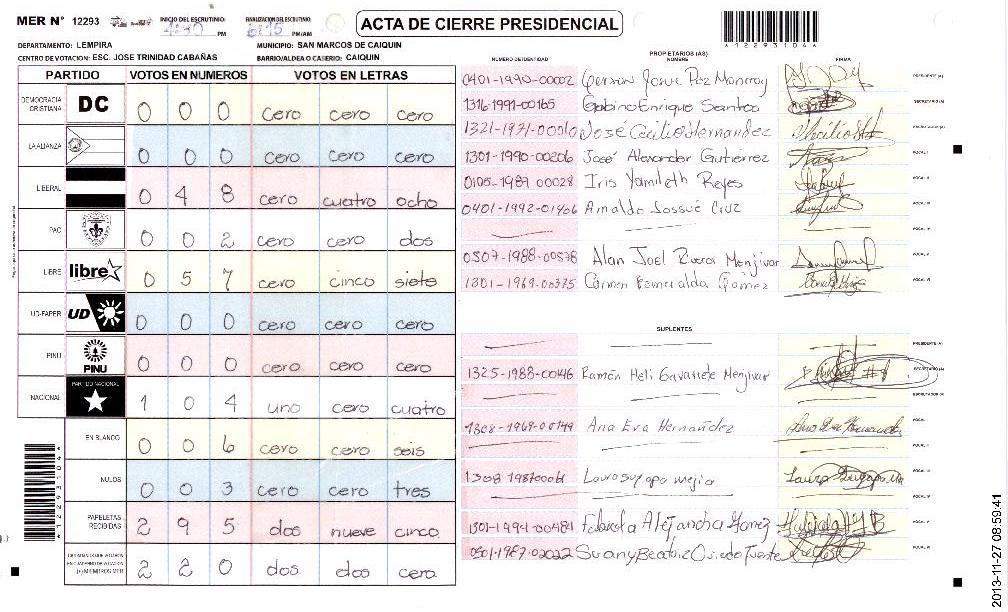 MER N° 12293
INICIO DEL ESCRUTINIO: 4:30 PM
FINALIZACION DEL ESCRUTINIO: 6:15 PM/AM
ACTA DE CIERRE PRESIDENCIAL
*12293104*
DEPARTAMENTO: LEMPIRA
MUNICIPIO: SAN MARCOS DE CAIQUIN
CENTRO DE VOTACION: ESC. JOSE TRINIDAD CABAÑAS
BARRIO/ALDEA O CASERIO: CAIQUIN
PARTIDO VOTOS EN NUMEROS VOTOS EN LETRAS
DEMOCRACIA CRISTIANA DC 0 0 0 cero cero cero
LA ALIANZA 0 0 0 cero cero cero
LIBERAL 0 4 8 cero cuatro ocho
PAC 0 0 2 cero cero dos
LIBRE libre 0 5 7 cero cinco siete
UD-FAPER UD 0 0 0 cero cero cero
PINU PINU 0 0 0 cero cero cero
NACIONAL PARTIDO NACIONAL 1 0 4 uno cero cuatro
EN BLANCO 0 0 6 cero cero seis
NULOS 0 0 3 cero cero tres
PAPELETAS RECIBIDAS 2 9 5 dos nueve cinco
CIUDADANOS QUE VOTARON EN CUADERNO DE VOTACION (+) MIEMBROS MER 2 2 0 dos dos cero
*12293104*
PROPIETARIOS (AS)
NUMERO DE IDENTIDAD NOMBRE FIRMA
0401-1990-00002 Gerson Josue Paz Monroy PRESIDENTE (A)
1316-1991-00165 Gabino Enrique Santos SECRETARIO (A)
1321-1971-00010 José Cecilio Hernandez ESCRUTADOR (A)
1301-1990-00206 José Alexander Gutiérrez VOCAL I
0105-1987 00028 Iris Yamileth Reyes VOCAL II
0401-1992-01406 Arnaldo Jossué Cruz VOCAL III
VOCAL IV
0507-1988-00578 Alan Joel Rivera Menjivar VOCAL V
1301-1969-00375 Carmen Esmeralda Gomez VOCAL VI
SUPLENTES
PRESIDENTE (A)
1325-1988-00146 Ramón Heli Gavarrete Menjivar SECRETARIO (A)
ESCRUTADOR (A)
1308-1969-00149 Ana Eva Hernández VOCAL I
VOCAL II
1308 198700061 VOCAL III
VOCAL IV
1301-1994-00481 Fabiola Alejandra Gomez VOCAL V
0501-1987-02022 Suany Beatriz VOCAL VI
2013-11-27 08:59:41